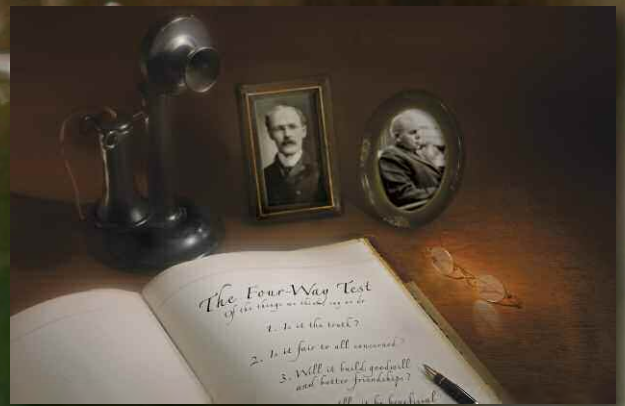 The Four-Way Test
Of the things we think, say or do
1. Is it the truth?
2. Is it fair to all concerned?
3. Will it build goodwill
and better friendships?
it be beneficial